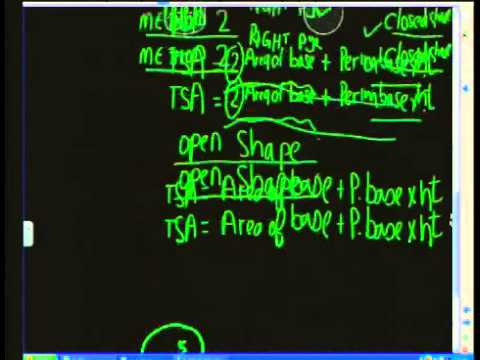 METHOD 2
RIGHT
✓ Closed shape
METHOD 2
TSA = 2 Area of base + Perim base x ht
TSA = 2 Area of base + Perim base x ht
open Shape
open Shape
TSA = Area of base + P. base x ht
TSA = Area of base + P. base x ht
5